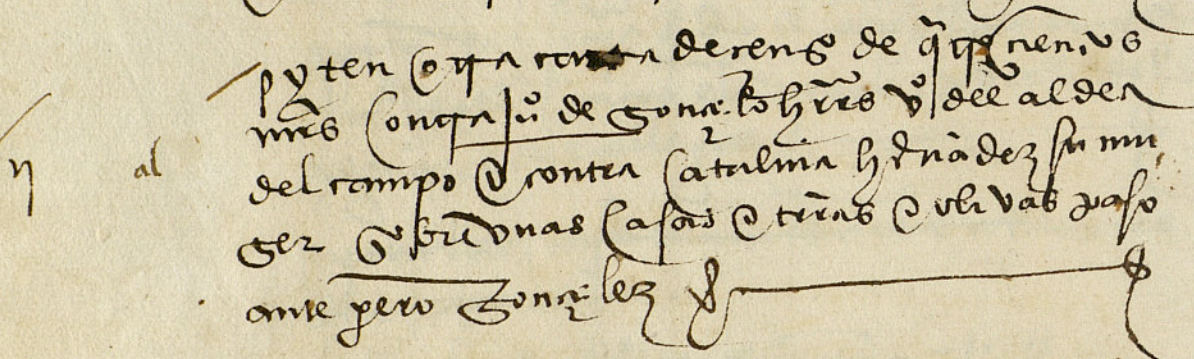 yten otra carta de censo de quinientos
mrs contra juº de gonçalo hrrs vº del aldea
n al del campo e contra catalina hernãdez su mu
ger sobre vnas casas e trras e olivas paso
ante pero gonçalez